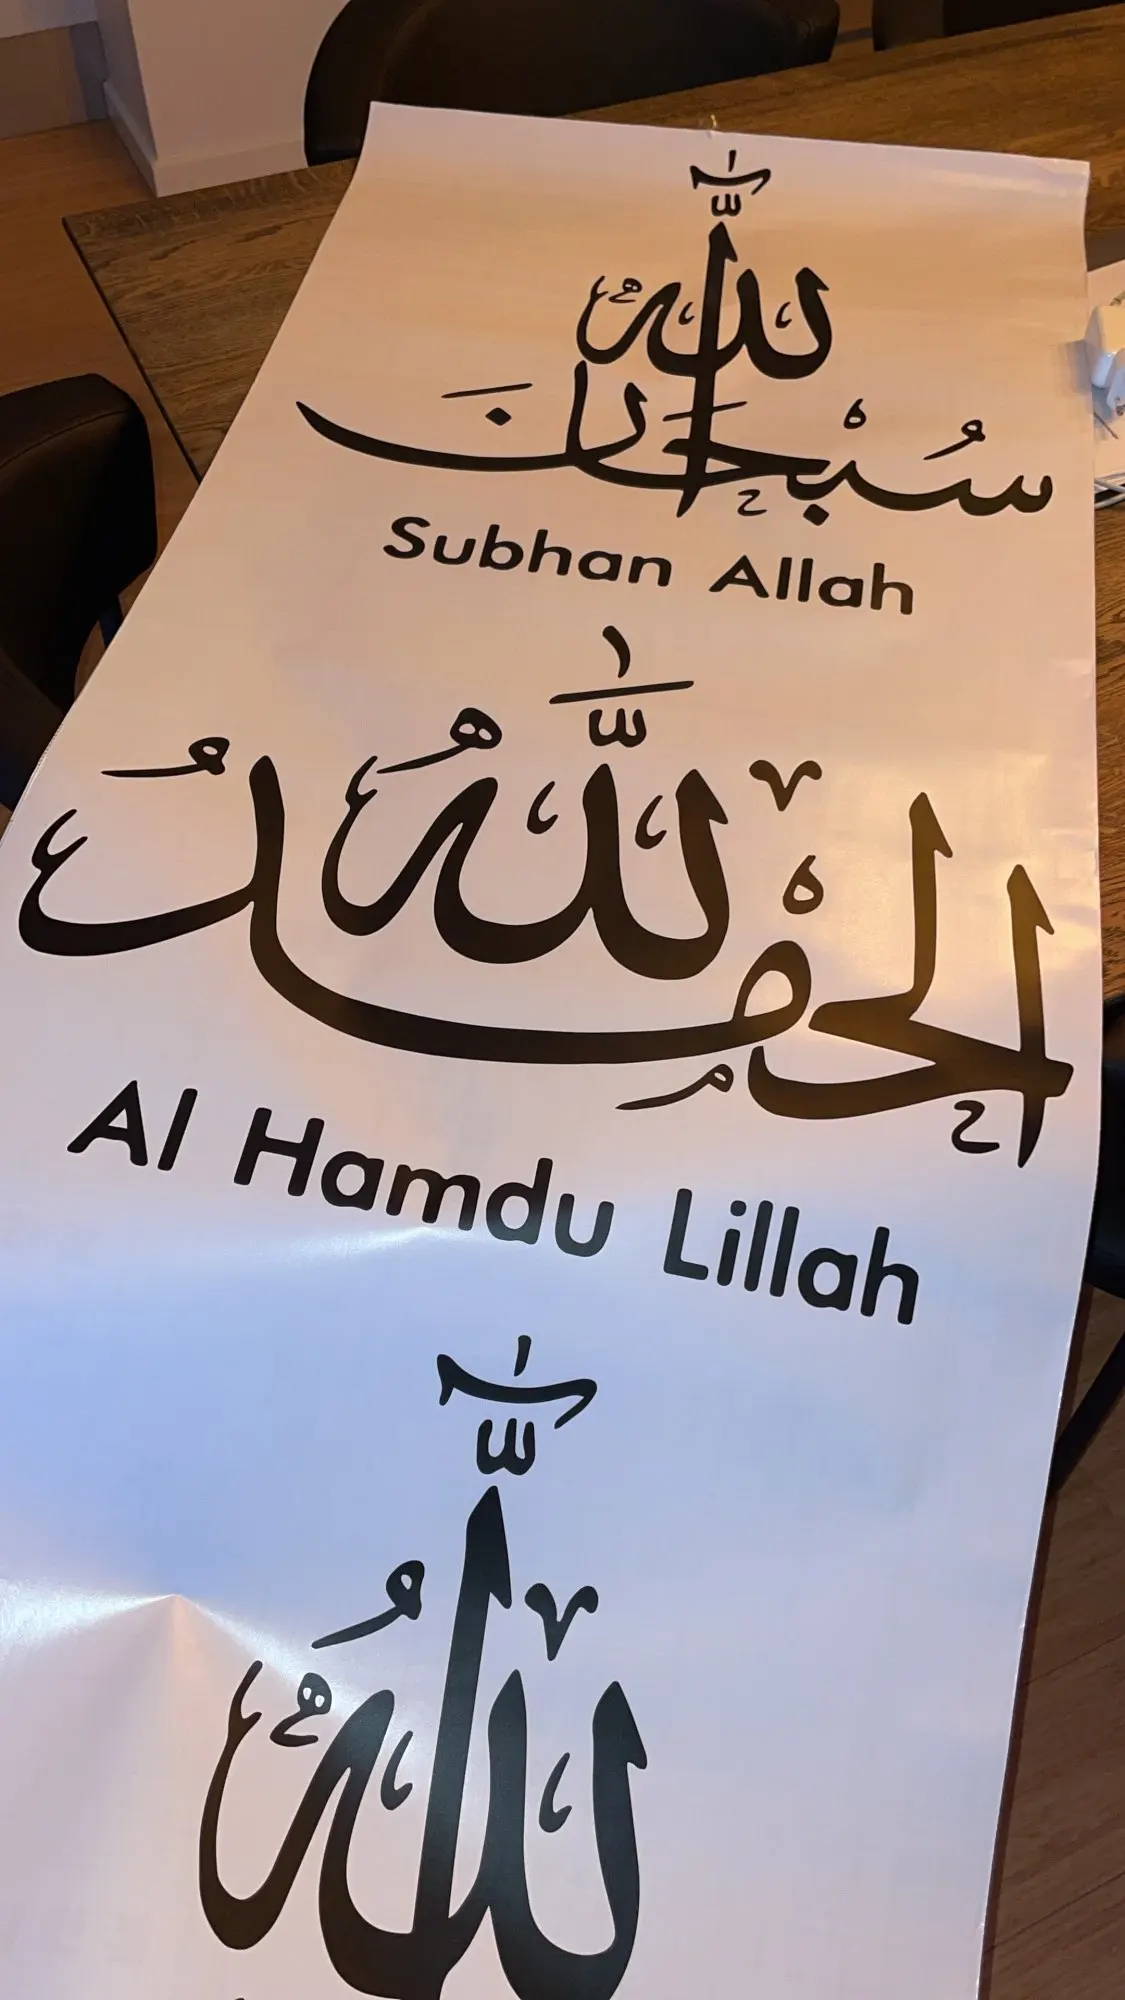 سُبْحَانَ اللّٰه
Subhan Allah
الْحَمْدُ لِلّٰهِ
Al Hamdu Lillah
اللّٰهُ